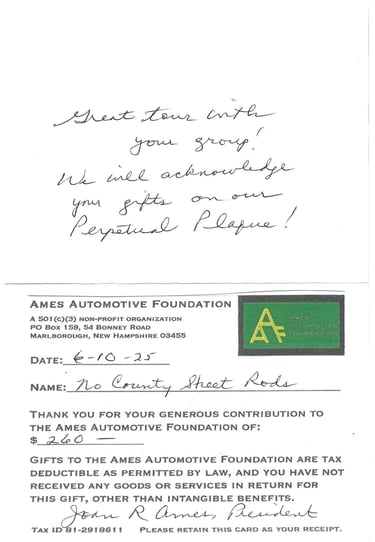 Great tour with
your group!
We will acknowledge
your gifts on our
Perpetual Plaque!
AMES AUTOMOTIVE FOUNDATION
A 501(C)(3) NON-PROFIT ORGANIZATION
PO BOX 159, 54 BONNEY ROAD
MARLBOROUGH, NEW HAMPSHIRE 03455
AAF
AMES
AUTOMOTIVE
FOUNDATION
DATE: 6-10-25
NAME: No County Street Rods
THANK YOU FOR YOUR GENEROUS CONTRIBUTION TO
THE AMES AUTOMOTIVE FOUNDATION OF:
$ 260 —
GIFTS TO THE AMES AUTOMOTIVE FOUNDATION ARE TAX
DEDUCTIBLE AS PERMITTED BY LAW, AND YOU HAVE NOT
RECEIVED ANY GOODS OR SERVICES IN RETURN FOR
THIS GIFT, OTHER THAN INTANGIBLE BENEFITS.
Joan R Ames, President
TAX ID 81-2918611 PLEASE RETAIN THIS CARD AS YOUR RECEIPT.